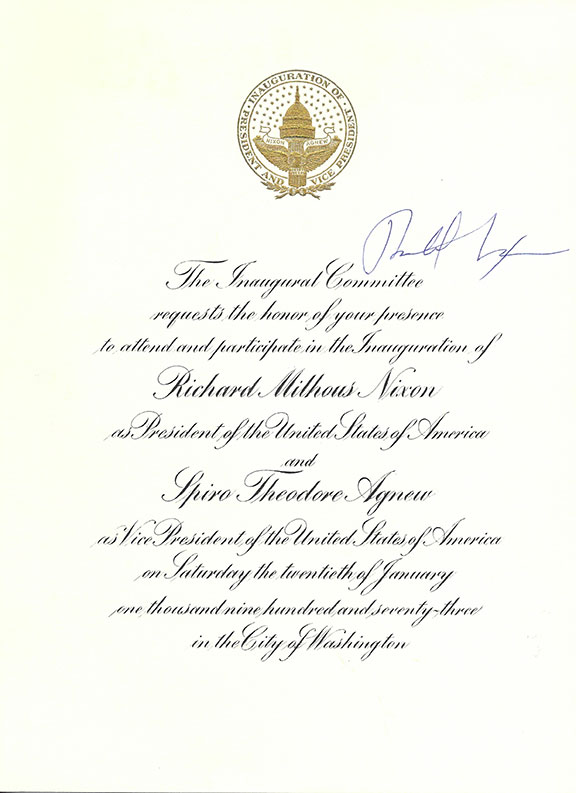 INAUGURATION OF
PRESIDENT AND VICE PRESIDENT
NIXON AGNEW
The Inaugural Committee
requests the honor of your presence
to attend and participate in the Inauguration of
Richard Milhous Nixon
as President of the United States of America
and
Spiro Theodore Agnew
as Vice President of the United States of America
on Saturday the twentieth of January
one thousand nine hundred and seventy-three
in the City of Washington